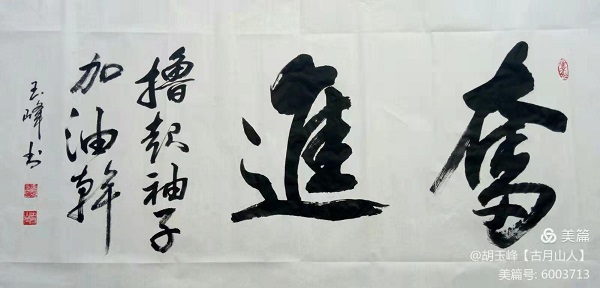 奮進
撸起袖子
加油幹
玉峰书
美篇
@胡玉峰【古月山人】
美篇号: 6003713